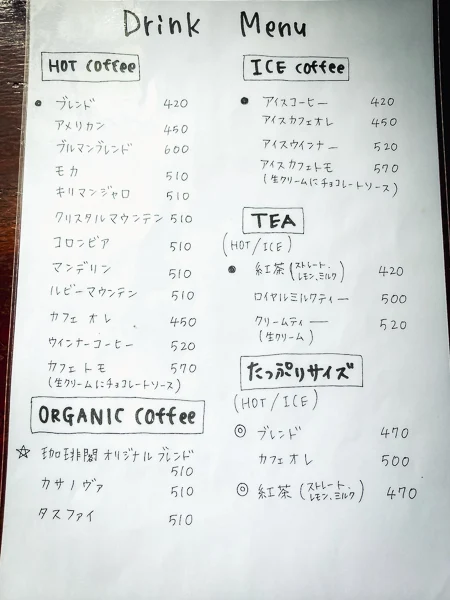 Drink Menu
HOT coffee
● ブレンド 420
アメリカン 450
ブルマンブレンド 600
モカ 510
キリマンジャロ 510
クリスタルマウンテン 510
コロンビア 510
マンデリン 510
ルビーマウンテン 510
カフェ オレ 450
ウインナーコーヒー 520
カフェトモ 570
(生クリームにチョコレートソース)
ORGANIC coffee
☆ 珈琲閣 オリジナル ブレンド
510
カサノヴァ 510
タスファイ 510
ICE coffee
● アイスコーヒー 420
アイスカフェオレ 450
アイスウインナー 520
アイスカフェトモ 570
(生クリームにチョコレートソース)
TEA
(HOT/ICE)
● 紅茶 (ストレート、レモン、ミルク) 420
ロイヤルミルクティー 500
クリームティー 520
(生クリーム)
たっぷりサイズ
(HOT/ICE)
◎ ブレンド 470
カフェオレ 500
◎ 紅茶 (ストレート、レモン、ミルク) 470